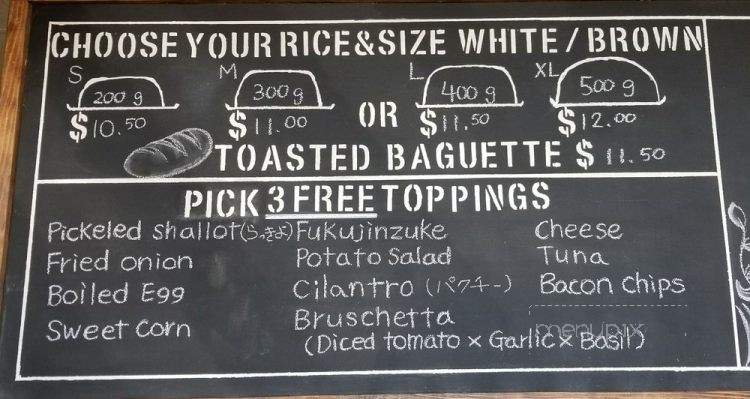 CHOOSE YOUR RICE & SIZE WHITE / BROWN
S M L XL
200g 300g 400g 500g
$10.50 $11.00 OR $11.50 $12.00
TOASTED BAGUETTE $11.50
PICK 3 FREE TOPPINGS
Pickeled shallot(らっきょ) Fukujinzuke Cheese
Fried onion Potato Salad Tuna
Boiled Egg Cilantro (パクチー) Bacon chips
Sweet Corn Bruschetta
(Diced tomato x Garlic x Basil)
menupix